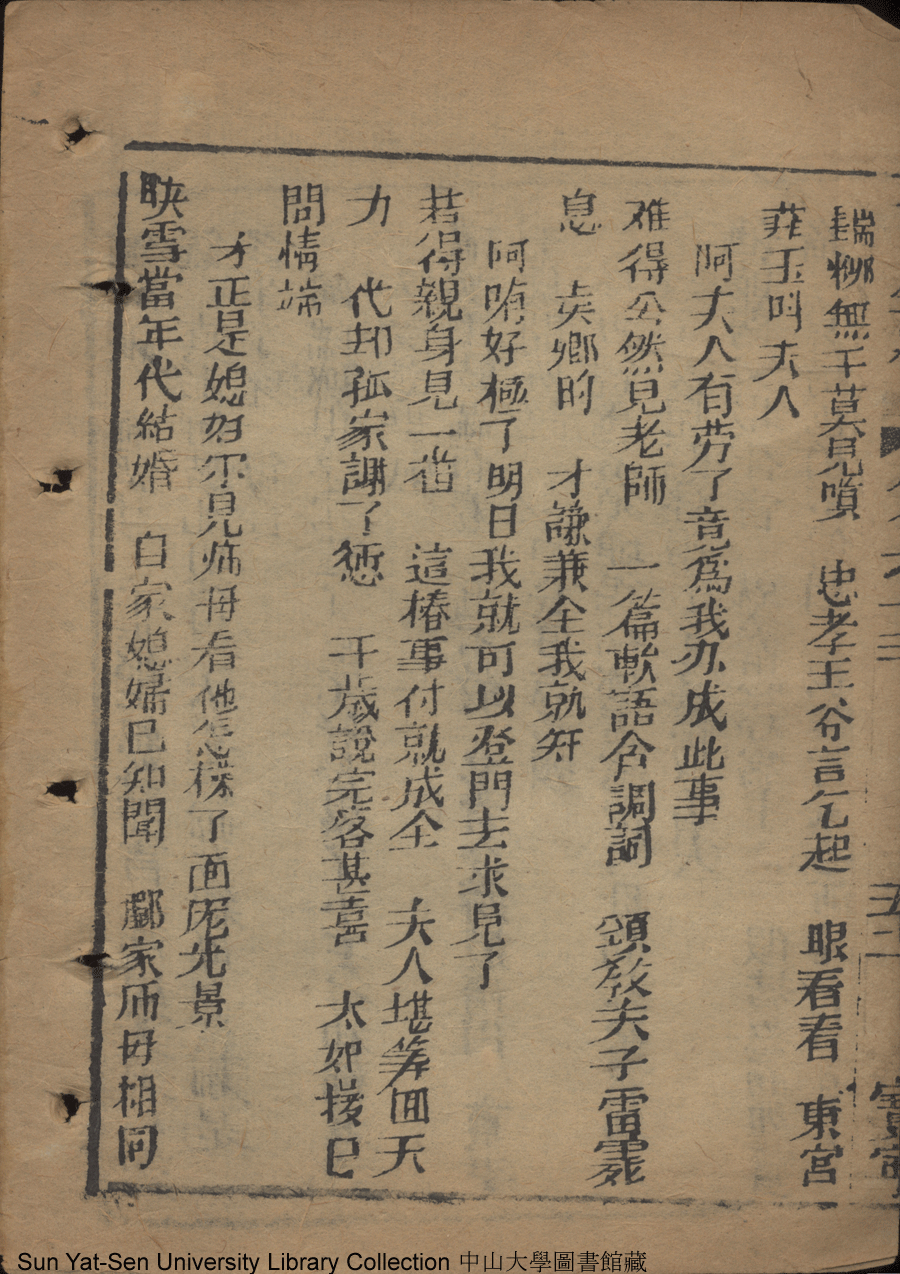 無干莫見嗔 忠孝王爺言乞起 眼看看 東宮
玉呌夫人
阿夫人有劳了竟爲我办成此事
难得公然見老師 一篇軟語含調詞 頌教夫子雷霆
息 卿的 才謙兼全我就知
阿唷好極了明日我就可以登門去求見了
若得親身見一啚 這椿事付就成全 夫人堪筭回天
力 代却孤家謝了 千歲說完容甚喜 太如接已
問情端
才正是媳妇尔見师母看他怎樣了面庞光景
映雪當年代結婚 自家媳婦已知聞 酈家师毋相同
五二
Sun Yat-Sen University Library Collection 中山大學圖書館藏